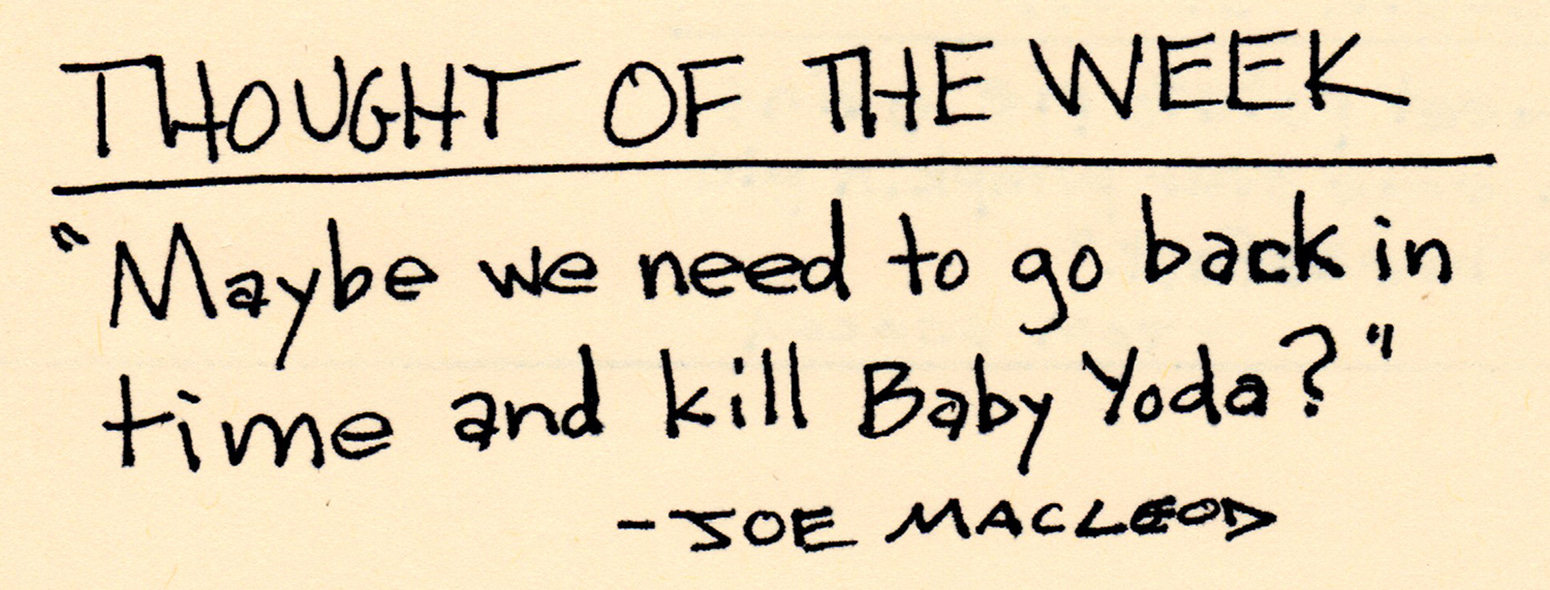 THOUGHT OF THE WEEK
"Maybe we need to go back in
time and kill Baby Yoda?"
-JOE MACLEOD